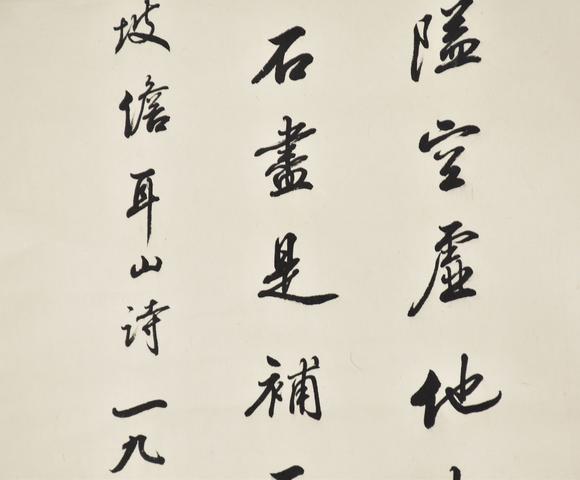 隘空虛他
石盡是補
坡儋耳山詩一九